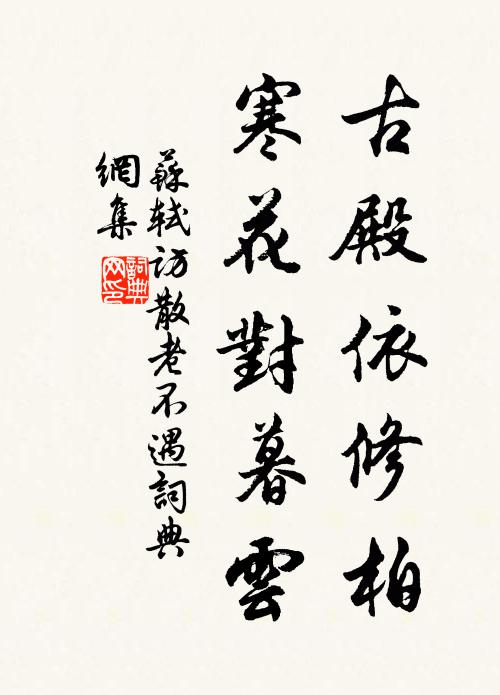 古殿依修柏
寒花對暮雲
蘇軾訪散老不遇詞典
網集
詞典網印